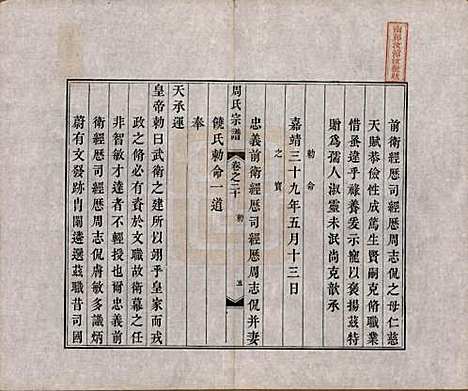 前衛經歷司經歷周志侃之母仁慈
天賦恭儉性成篤生賢嗣克脩職業
惜蚤違乎祿養爰示寵以褒揚茲特
贈為孺人淑靈未泯尚克歆承
勅命
嘉靖三十九年五月十三日
之寶
周氏宗譜
卷之二十
勅
五
忠義前衛經歷司經歷周志侃并妻
饒氏勅命一道
奉
天承運
皇帝勅曰武衛之建所以翊乎皇家而戎
政之脩必有資於文職故衛幕之任
非智敏才達者不輕授也爾忠義前
衛經歷司經歷周志侃膚敏多識炳
蔚有文發跡冑闈遴選茲職昔司國